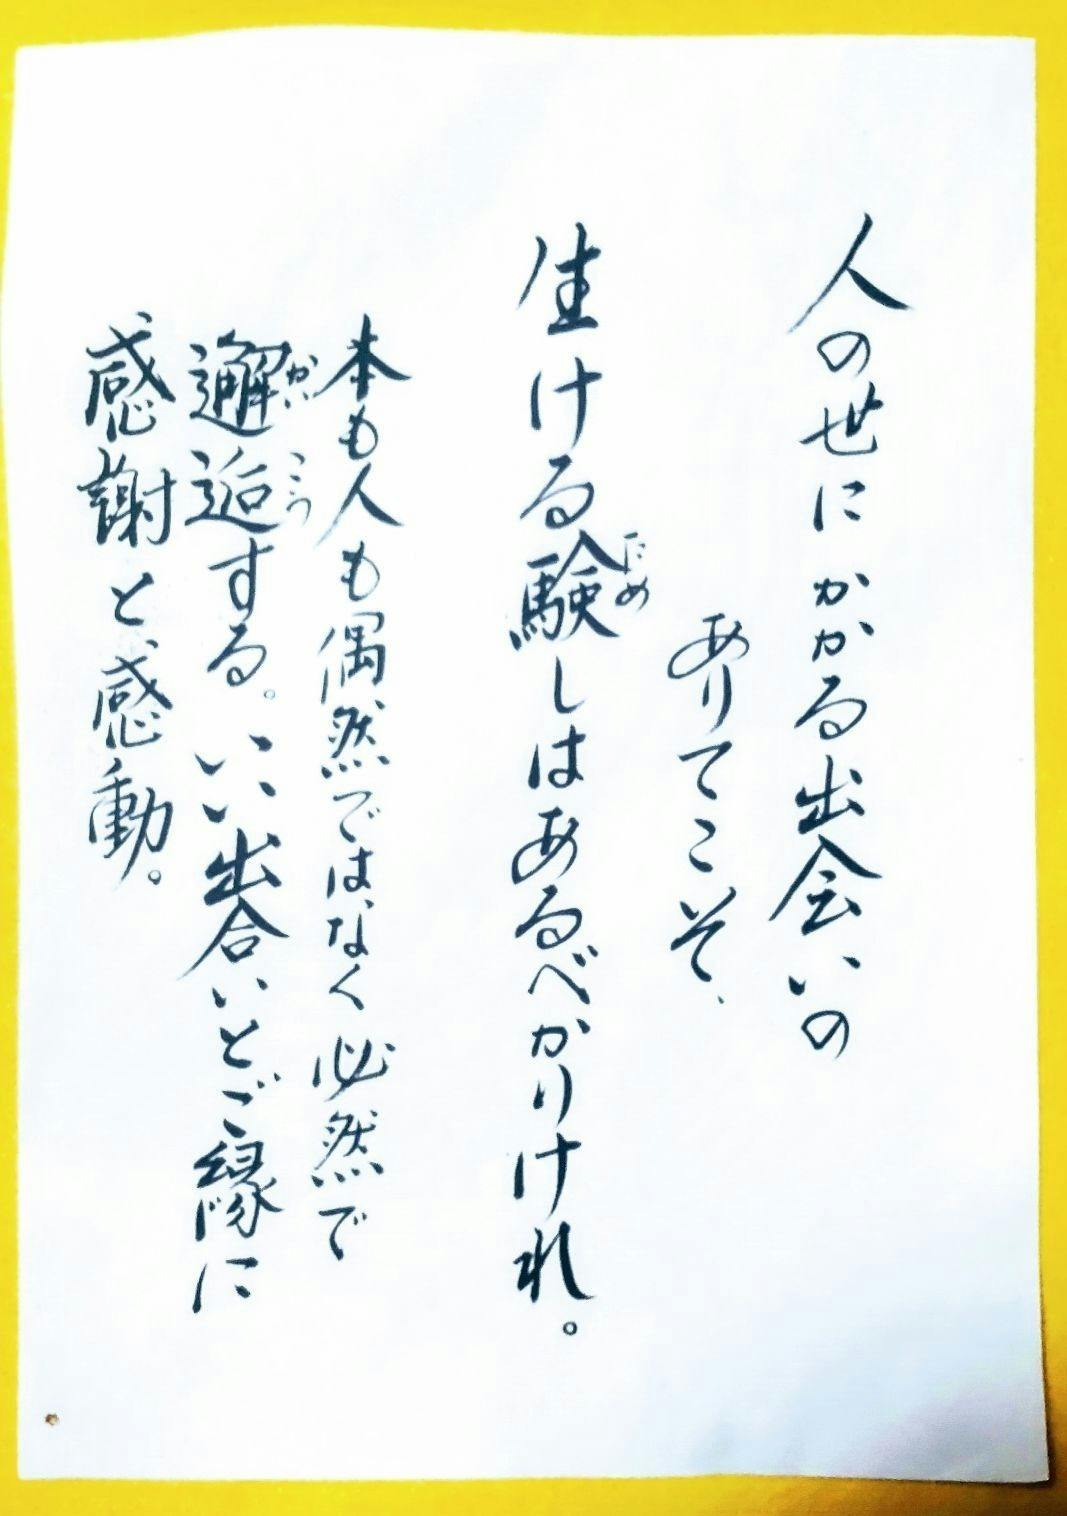 人の世にかかる出会いの
ありてこそ、
生ける験しはあるべかりけれ。
ため
本も人も偶然ではなく必然で
邂逅する。いい出合いとご縁に
かいこう
感謝と、感動。